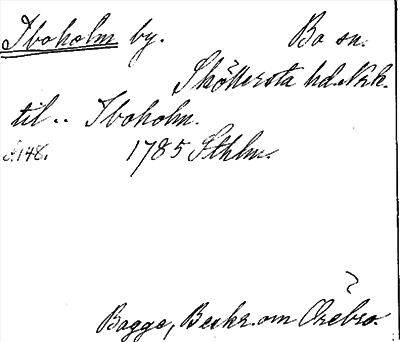 Iboholm by. Bo sn.
Sköllersta hd. Nkk.
til.. Iboholm.
S. 148. 1785 Sthlm.
Bagge, Beskr. om Örebro.